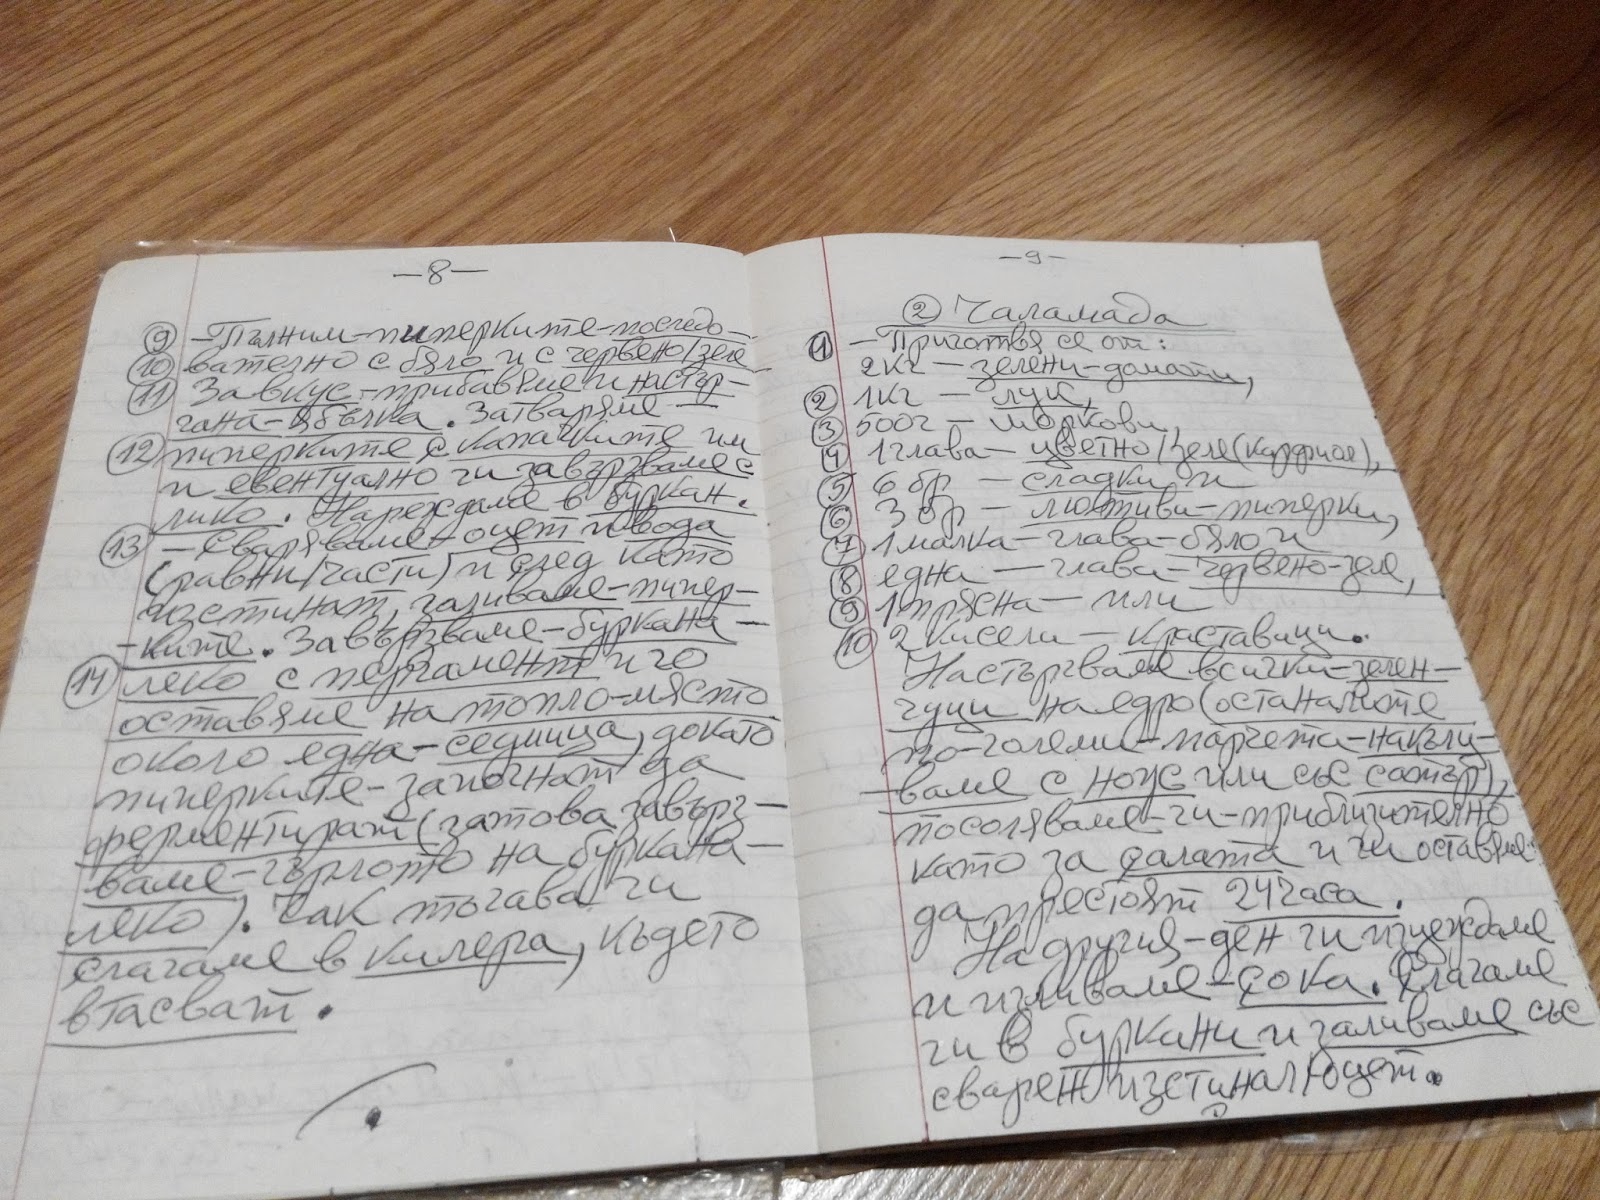 —8—
⑨ —Пълним-пиперките-последо-
⑩ вателно с бяло и с червено/зеле
⑪ За вкус-прибавяме и настър-
гана-ябълка. Затваряме —
⑫ пиперките с капачките им
и евентуално ги завързваме с
лико. Нареждаме в буркан.
⑬ —Сваряваме-оцет и вода
(равни/части) и след като
изстинат, заливаме-пипер-
-ките. Завързваме-буркана-
⑭ леко с пергамент и го
оставяме на топло-място
около една-седмица, докато
пиперките-започнат да
ферментират (затова завърз-
ваме-гърлото на буркана-
леко). Чак тогава ги
слагаме в килера, където
втасват.
—9—
② Чаламада
① —Приготвя се от:
2кг — зелени-домати,
② 1кг — лук,
③ 500г — моркови,
④ 1 глава — цветно/зеле (карфиол),
⑤ 6 бр — сладки и
⑥ 3 бр — лютиви-пиперки,
⑦ 1 малка-глава-бяло и
⑧ една — глава-червено-зеле,
⑨ 1 прясна — или
⑩ 2 кисели — краставици.
Настъргваме всички-зелен-
чуци на едро (останалите
по-големи-парчета-накълц-
-ваме с нож или със сатър),
посоляваме-ги-приблизително
като за салата и ги оставяме
да престоят 24 часа.
На другия-ден ги изцеждаме
и изливаме-сока. Слагаме
ги в буркани и заливаме със
сварен и изстинал/оцет.